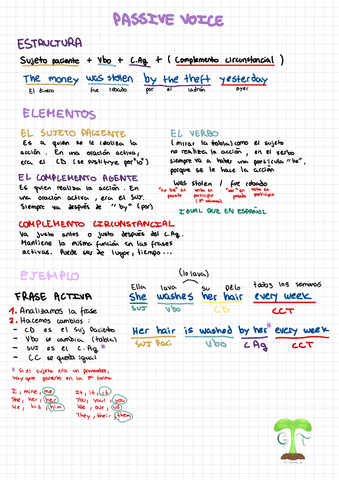 PASSIVE VOICE
ESTRUCTURA
Sujeto paciente + Vbo + C.Ag + (Complemento circunstancial)
The money was stolen by the theft yesterday
El dinero fue robado por el ladrón ayer
ELEMENTOS
EL SUJETO PACIENTE
Es a quien se le realiza la
acción. En una oración activa,
era el CD (se sustituye por "lo")
EL COMPLEMENTO AGENTE
Es quien realiza la acción. En
una oración activa, era el SUJ.
Siempre va después de "by" (por)
EL VERBO
(mirar la tabla) como el sujeto
no realiza la acción, en el verbo
siempre va a haber una partícula "be",
porque se le hace la acción
was stolen / fue robado
IGUAL QUE EN ESPAÑOL
COMPLEMENTO CIRCUNSTANCIAL
Va justo antes o justo después del C.Ag.
Mantiene la misma función en las frases
activas. Puede ser de lugar, tiempo...
EJEMPLO
FRASE ACTIVA
1. Analizamos la frase
2. Hacemos cambios:
- CD es el Suj Paciente
- Vbo se cambia (tabla)
- SUJ es el C.Ag *
- CC se queda igual
* Si el sujeto era un pronombre,
hay que ponerlo en la 3ª forma
I, mine, me
She, her, her
He, his, him
It, it, it
You, your, you
We, our, us
They, their, them
(lo lava)
Ella lava su pelo todas las semanas
She washes her hair every week
SUJ Vbo CD CCT
Her hair is washed by her* every week
SUJ PACI Vbo C.Ag CCT